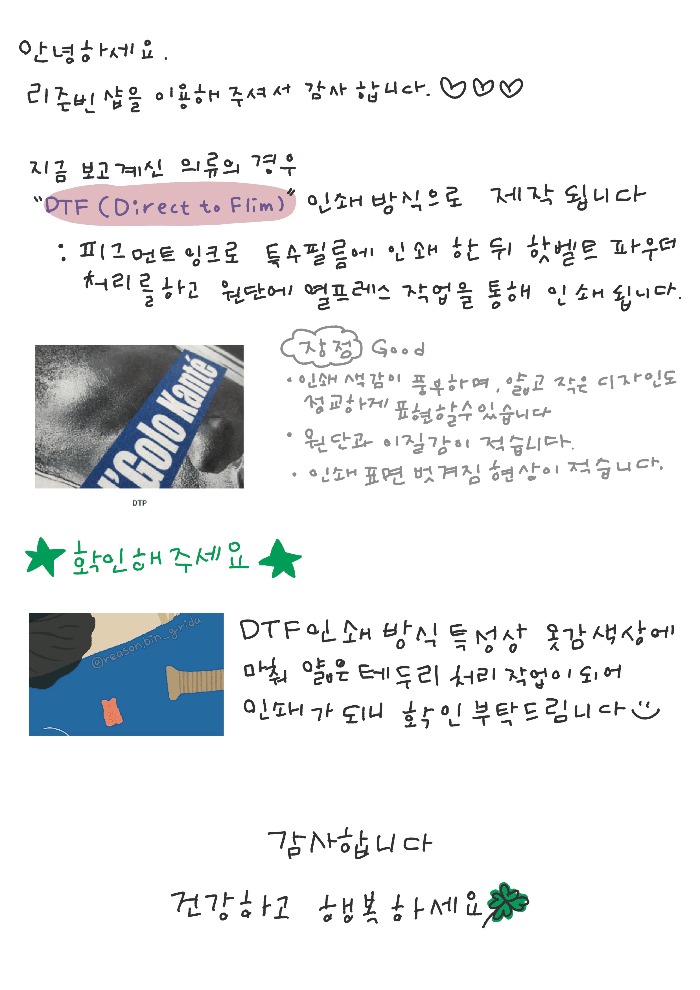 안녕하세요.
리준빈 샵을 이용해 주셔서 감사 합니다. ♡♡♡
지금 보고계신 의류의 경우
"DTF (Direct to Flim)" 인쇄 방식으로 제작 됩니다
: 피그먼트 잉크로 특수필름에 인쇄 한 뒤 핫벨트 파우더
처리를하고 원단에 열프레스 작업을 통해 인쇄 됩니다.
장점 Good
• 인쇄 색감이 풍부하며, 얇고 작은 디자인도
정교하게 표현할수있습니다
• 원단과 이질감이 적습니다.
• 인쇄 표면 벗겨짐 현상이 적습니다.
N'Golo Kanté
DTP
★ 확인해주세요 ★
@reason.bin_grida
DTF인쇄 방식 특성상 옷감색상에
마춰 얇은 테두리 처리 작업이 되어
인쇄가 되니 확인 부탁드립니다
감사합니다
건강하고 행복하세요